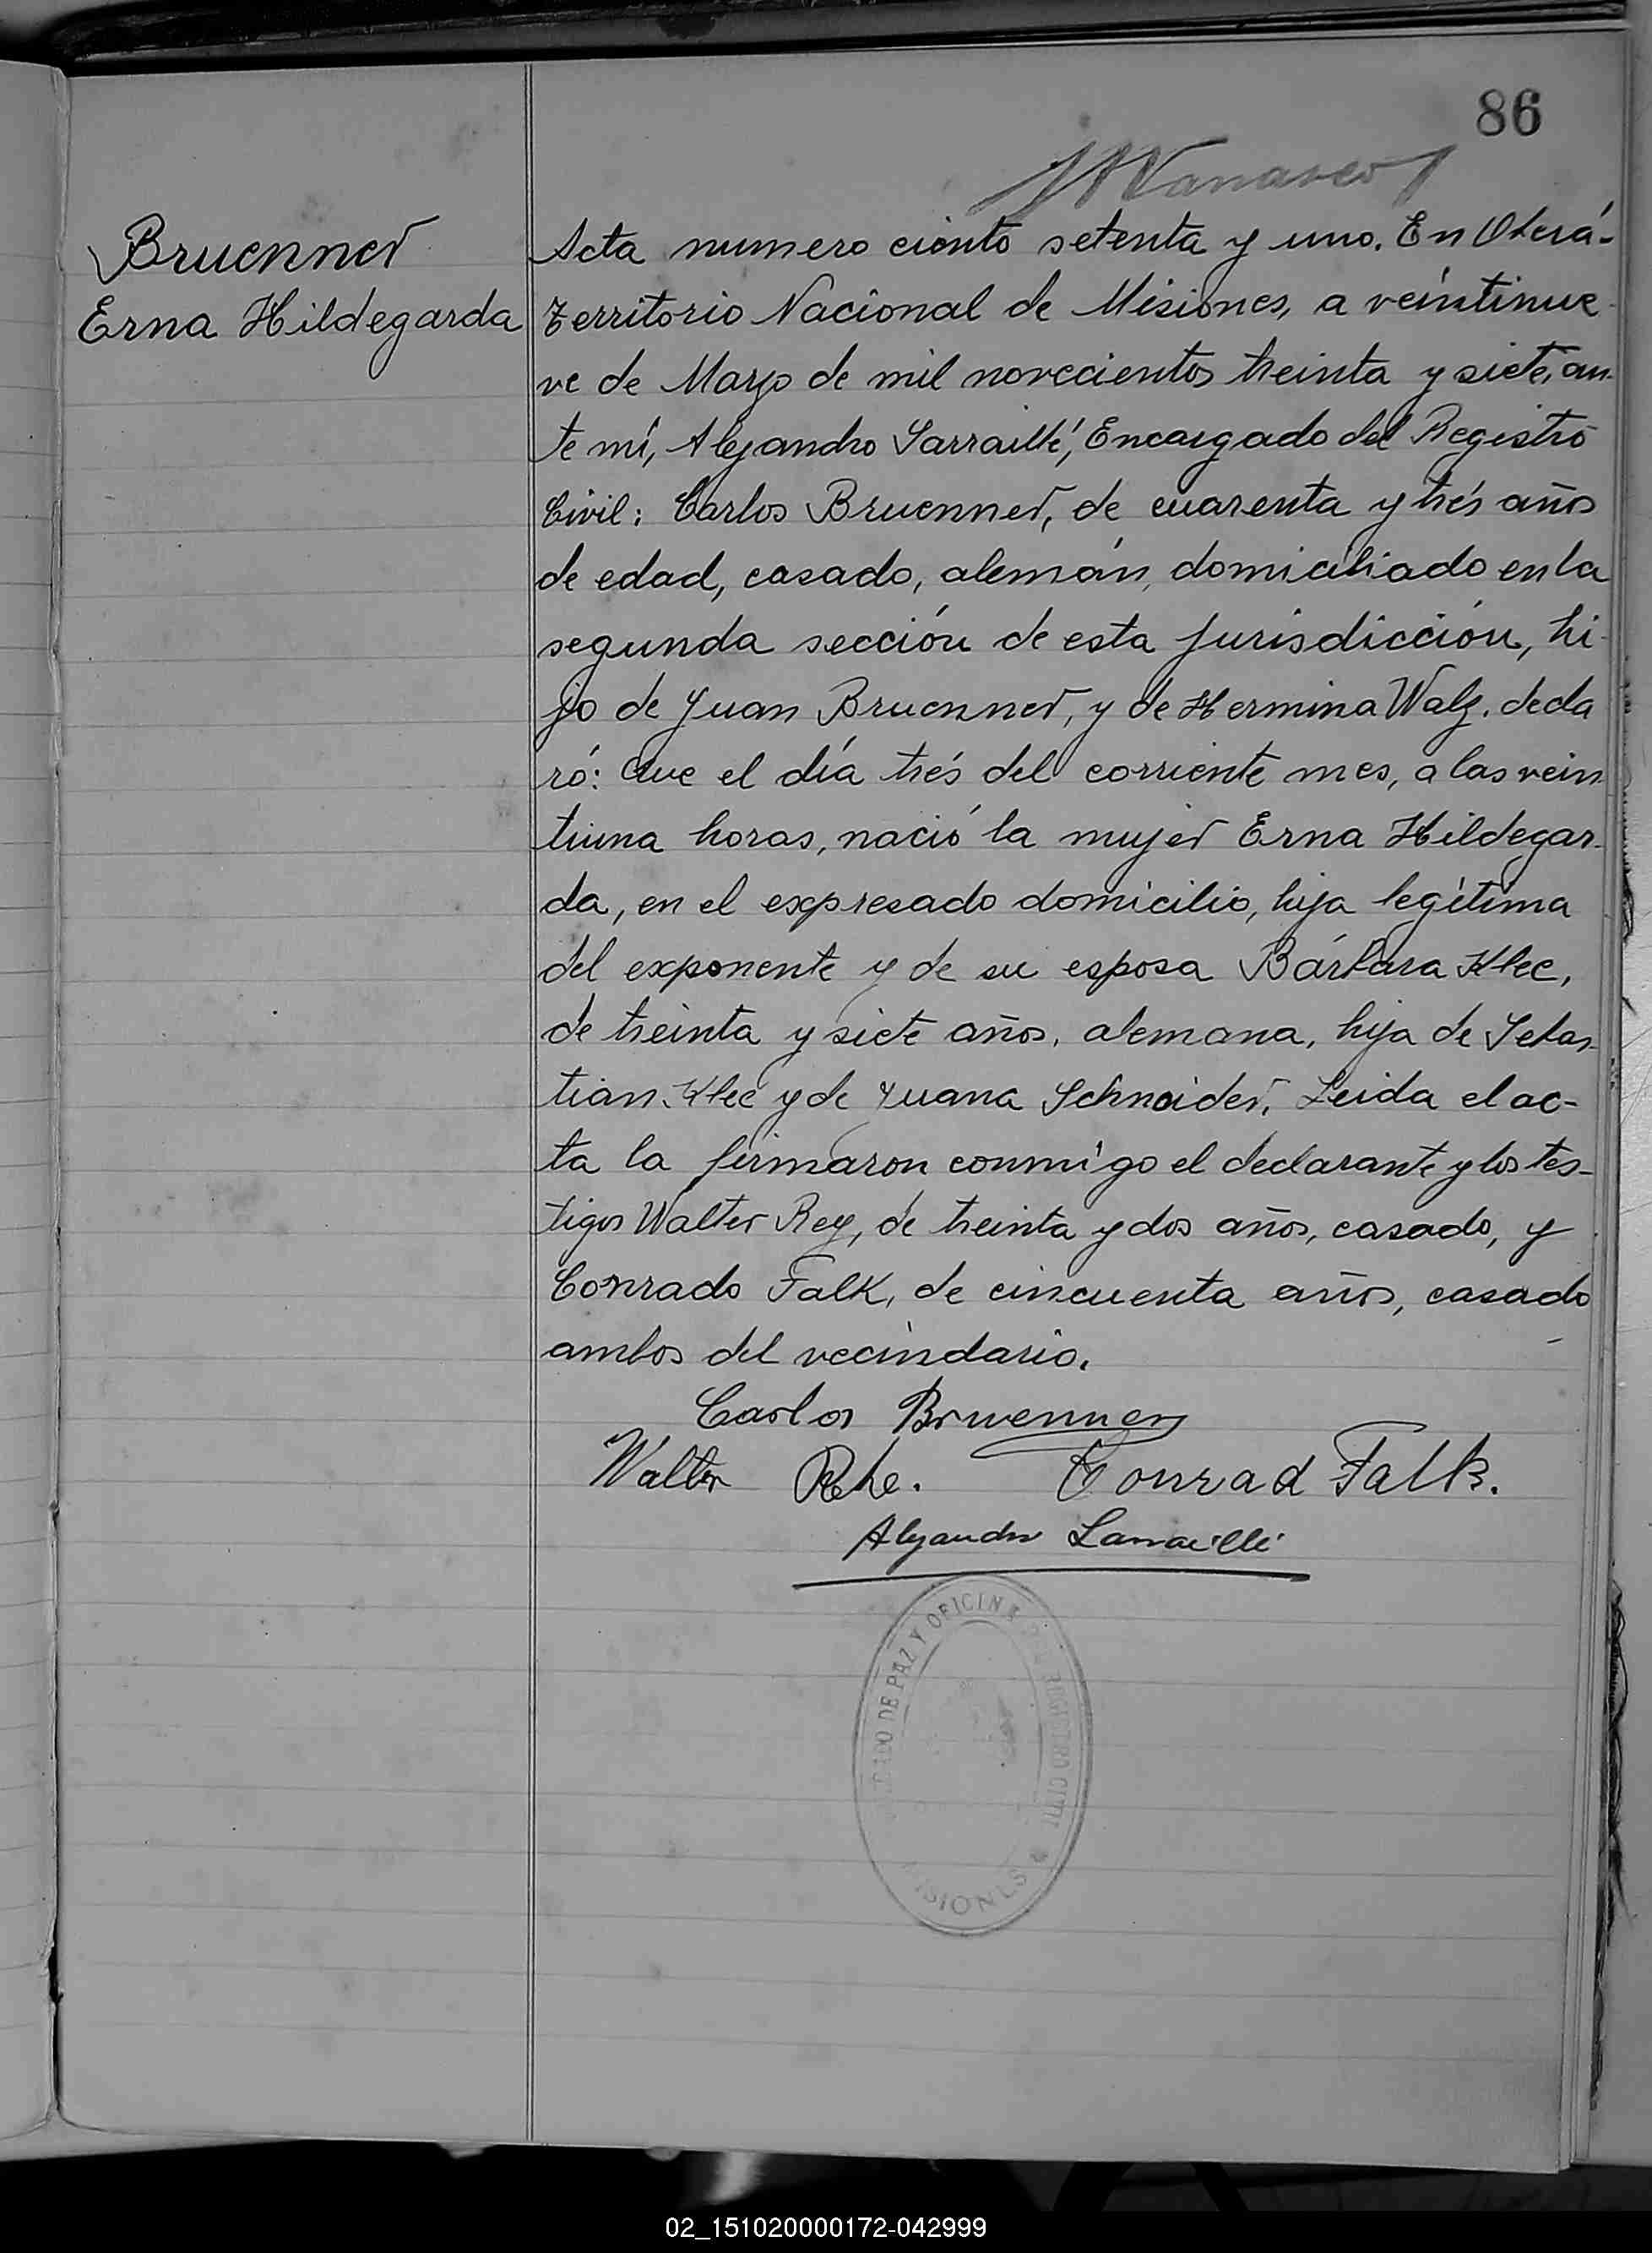 86
Bruenner
Erna Hildegarda
Acta numero ciento setenta y uno. En Oberá-
Territorio Nacional de Misiones, a veintinue-
ve de Marzo de mil novecientos treinta y siete, an-
te mí, Alejandro Sarraillé, Encargado del Registro
Civil: Carlos Bruenner, de cuarenta y trés años
de edad, casado, alemán, domiciliado en la
segunda sección de esta jurisdicción, hi-
jo de Juan Bruenner, y de Hermina Walz. decla
ró: Que el día trés del corriente mes, a las vein
tiuna horas, nació la mujer Erna Hildegar-
da, en el expresado domicilio, hija legítima
del exponente y de su esposa Bárbara Klee,
de treinta y siete años, alemana, hija de Sebas-
tian Klee y de Juana Schneider. Leida el ac-
ta la firmaron conmigo el declarante y los tes-
tigos Walter Rey, de treinta y dos años, casado, y
Conrado Falk, de cincuenta años, casado
ambos del vecindario.
Carlos Bruenner
Walter Rehe. Conrad Falk.
Alejandro Sarraillé
DE PAZ Y OFICINA
REGISTRO CIVIL
MISIONES
02_151020000172-042999